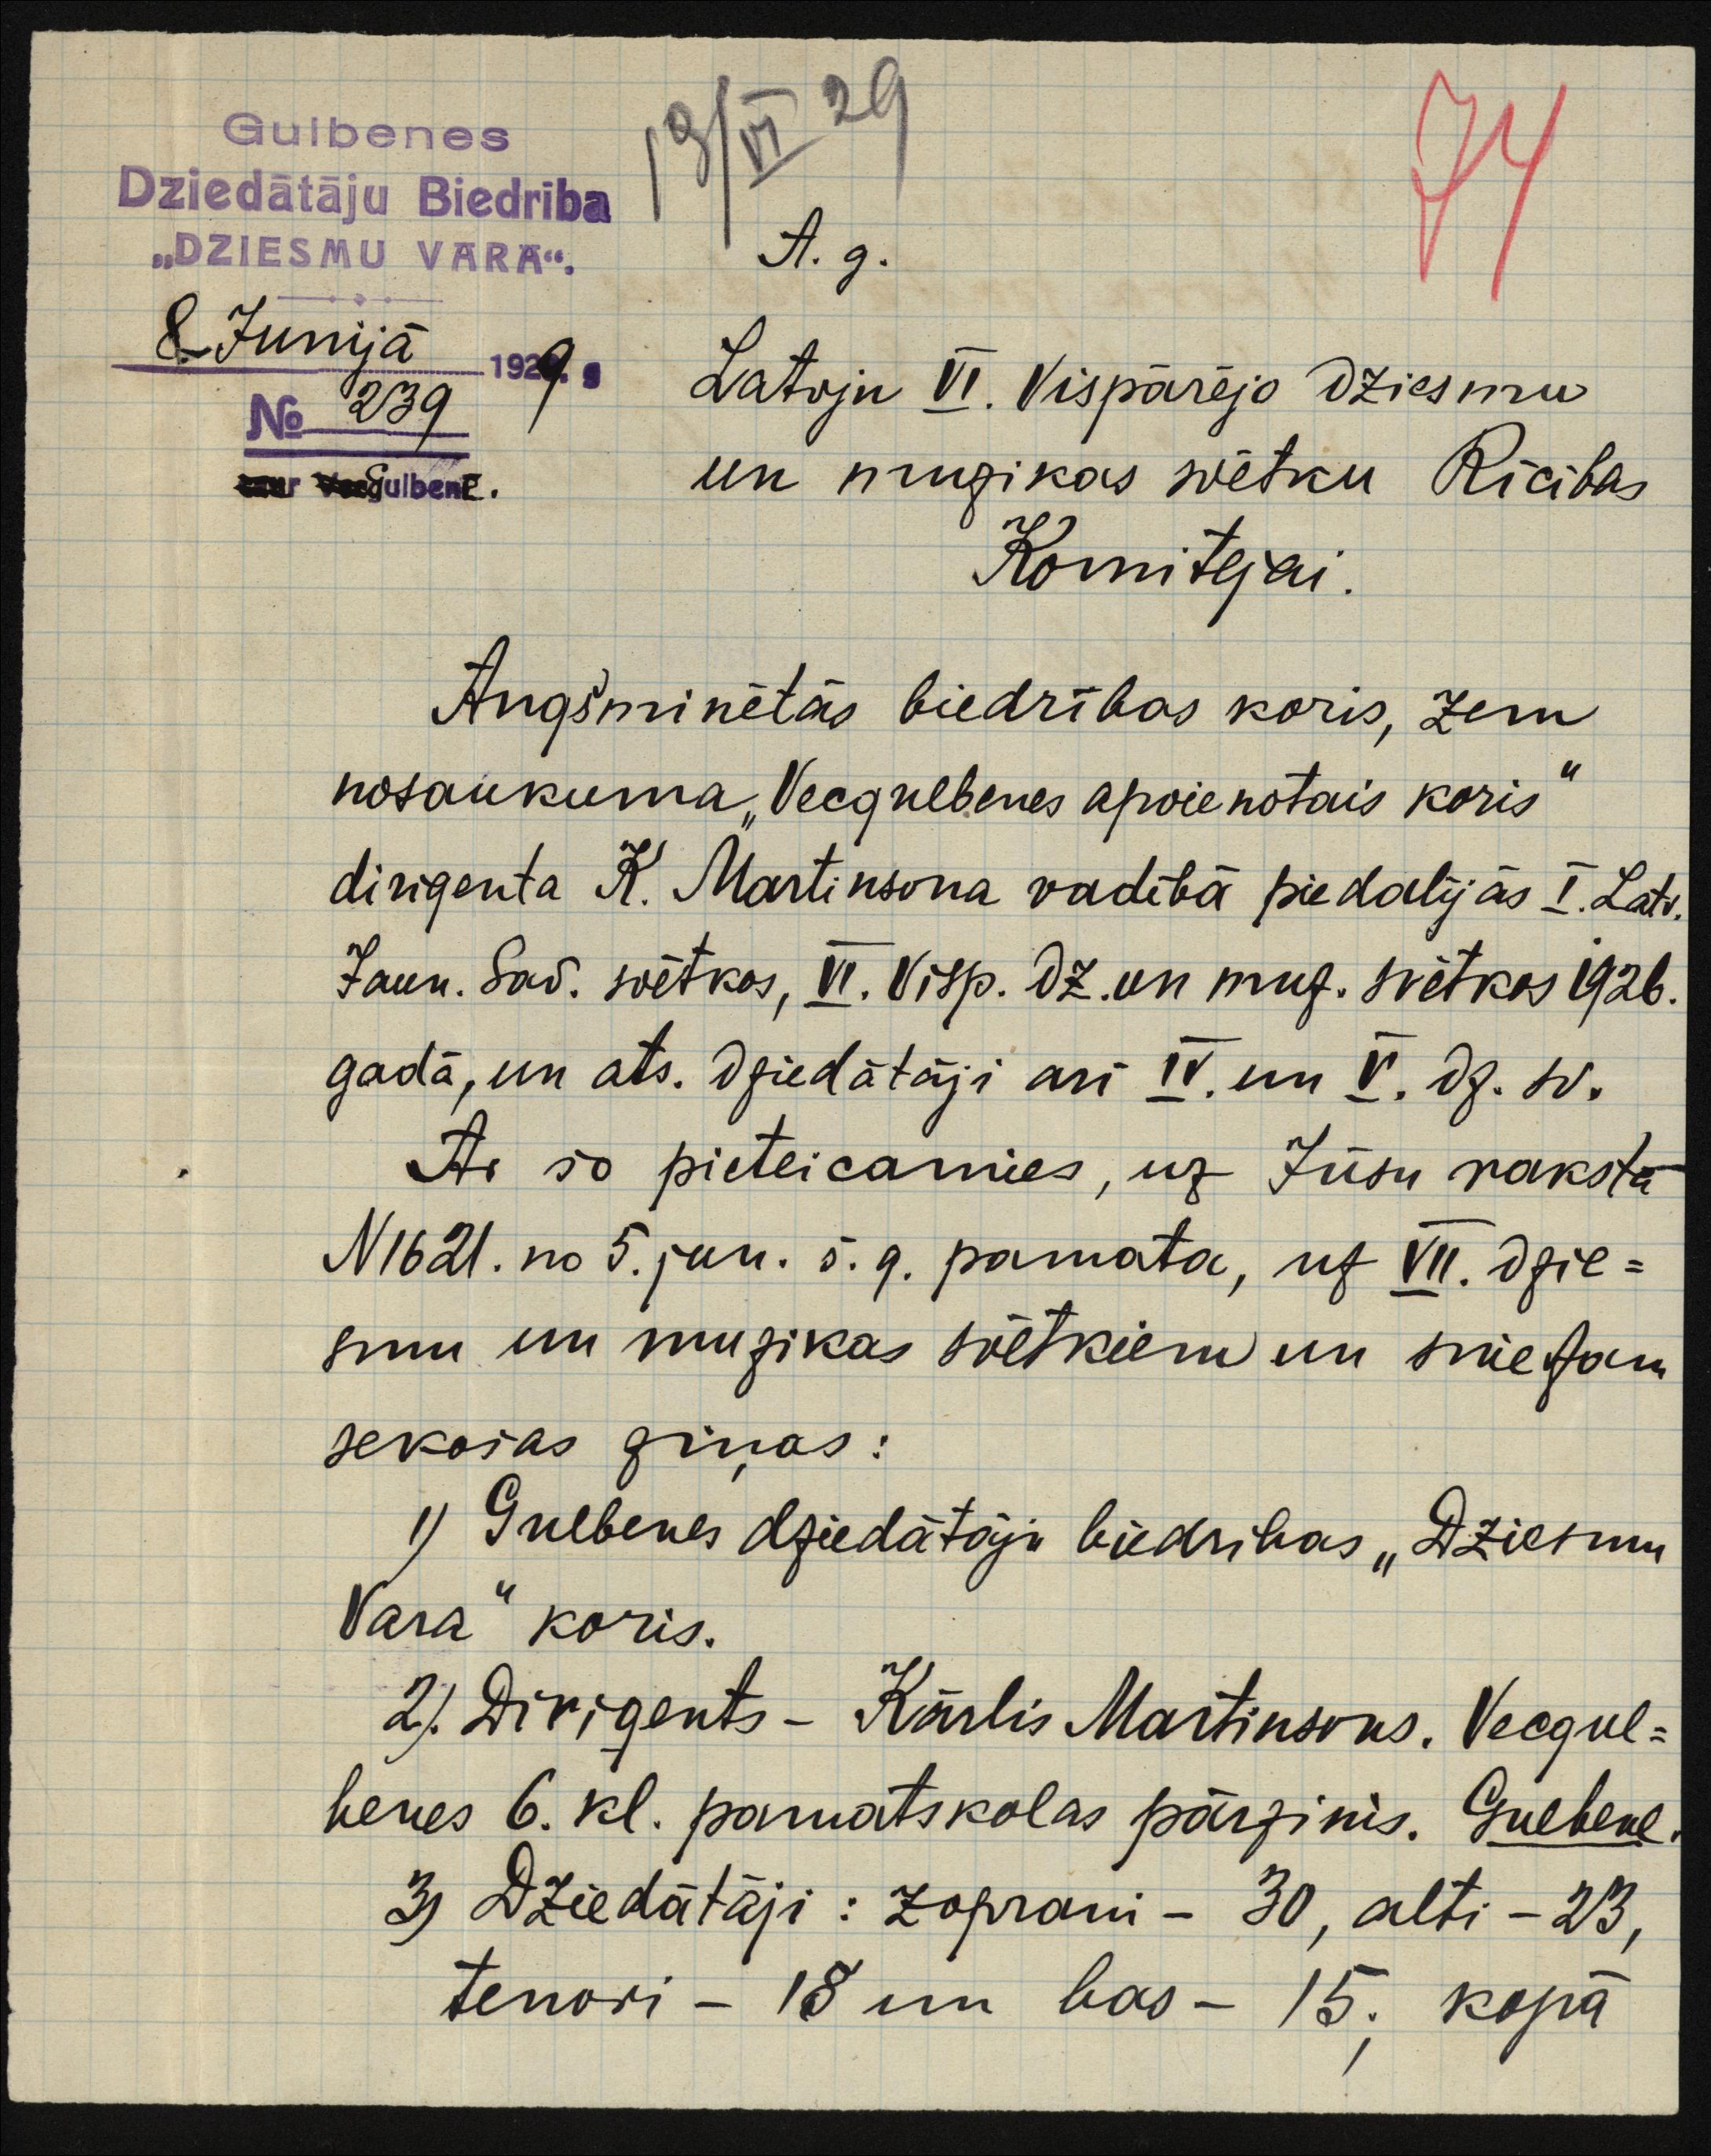 Gulbenes
Dziedātāju Biedrība
„DZIESMU VARA“.
8. Junijā 1929. g
№ 239
caur Vecgulbene.
13/VI 29
74
A. g.
Latvju VI. Vispārējo Dziesmu
un muzikas svētku Rīcības
Komitejai.
Augšminētās biedrības koris, zem
nosaukuma „Vecgulbenes apvienotais koris“
dirigenta K. Martinsona vadībā piedalījās I. Latv.
Jaun. Sav. svētkos, VI. Visp. Dz. un muz. svētkos 1926.
gadā, un ats. dziedātāji ari IV. un V. dz. sv.
Ar šo pieteicamies, uz Jūsu rakstā
N 1621. no 5. jun. š. g. pamata, uz VII. dzie=
smu un muzikas svētkiem un sniedzam
sekošas ziņas:
1) Gulbenes dziedātāju biedribas „Dziesmu
Vara“ koris.
2). Dirigents – Kārlis Martinsons. Vecgul=
benes 6. kl. pamatskolas pārzinis. Gulbene.
3) Dziedātāji: zoprani – 30, alti – 23,
tenori – 18 un bas – 15; kopā